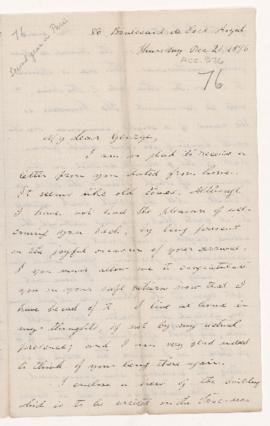 76
Second year, Paris
80 Boulevard de Port Royal
Thursday Dec 21, 1876
ACC. 576
76
My dear George,
I am so glad to receive a
letter from you dated from home.
It seems like old times. Although
I have not had the pleasure of wel-
coming you back, by being present
on the joyful occasion of your arrival
I you must allow me to congratulate
you on your safe return now that I
have heard of it. I live at home in
my thoughts, if not by my actual
presence; and I am very glad indeed
to think of your being there again.
I enclose a view of the building
which is to be erected on the